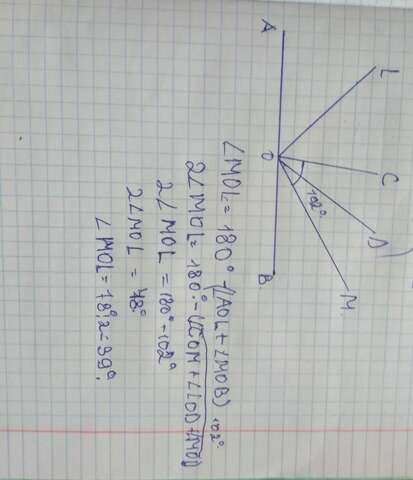 A
L
O
C
102°
D
M
B
∠MOL = 180° - (AOL + ∠MOB)
102°
2∠MOL = 180° - (∠COM + ∠LOD + MOD)
2∠MOL = 180° - 102°
2∠MOL = 78°
∠MOL = 78:2 = 39°.